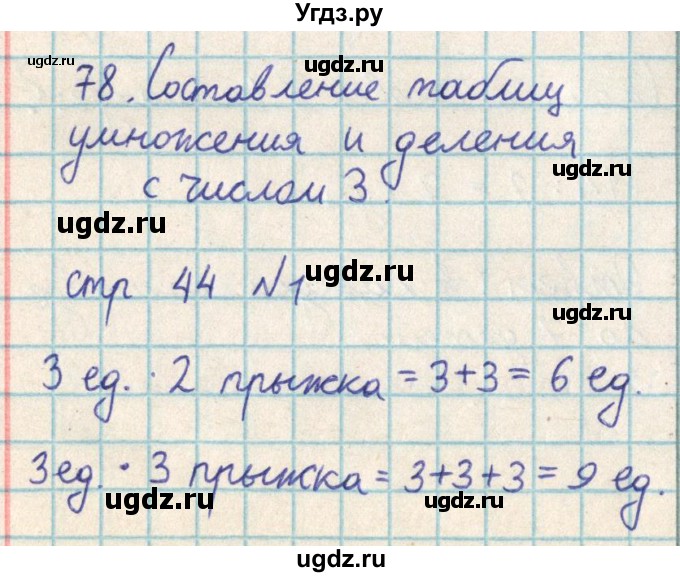 Угдз.ру
ugdz.ru ugdz.ru
78. Составление таблиц
умножения и деления
с числом 3.
ugdz.ru ugdz.ru
стр 44 №1 ugdz.ru
ugdz.ru
3 ед. · 2 прыжка = 3+3 = 6 ед.
ugdz.ru ugdz.ru
3ед. · 3 прыжка = 3+3+3 = 9 ед.
ugdz.ru ugdz.ru
ugdz.ru